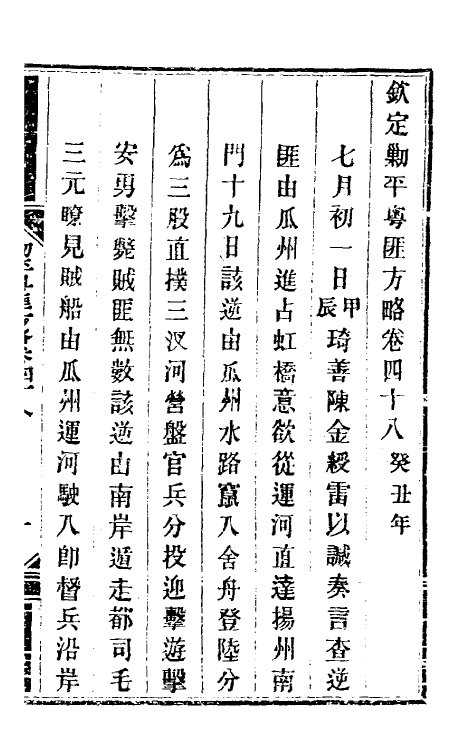 欽定勦平粤匪方略卷四十八 癸丑年
七月初一日甲辰琦善陳金綬雷以諴奏言查逆
匪由瓜州進占虹橋意欲從運河直達揚州南
門十九日該逆由瓜州水路竄入舍舟登陸分
爲三股直撲三汊河營盤官兵分投迎擊遊擊
安勇擊斃賊匪無數該逆由南岸遁走都司毛
三元瞭見賊船由瓜州運河駛入卽督兵沿岸